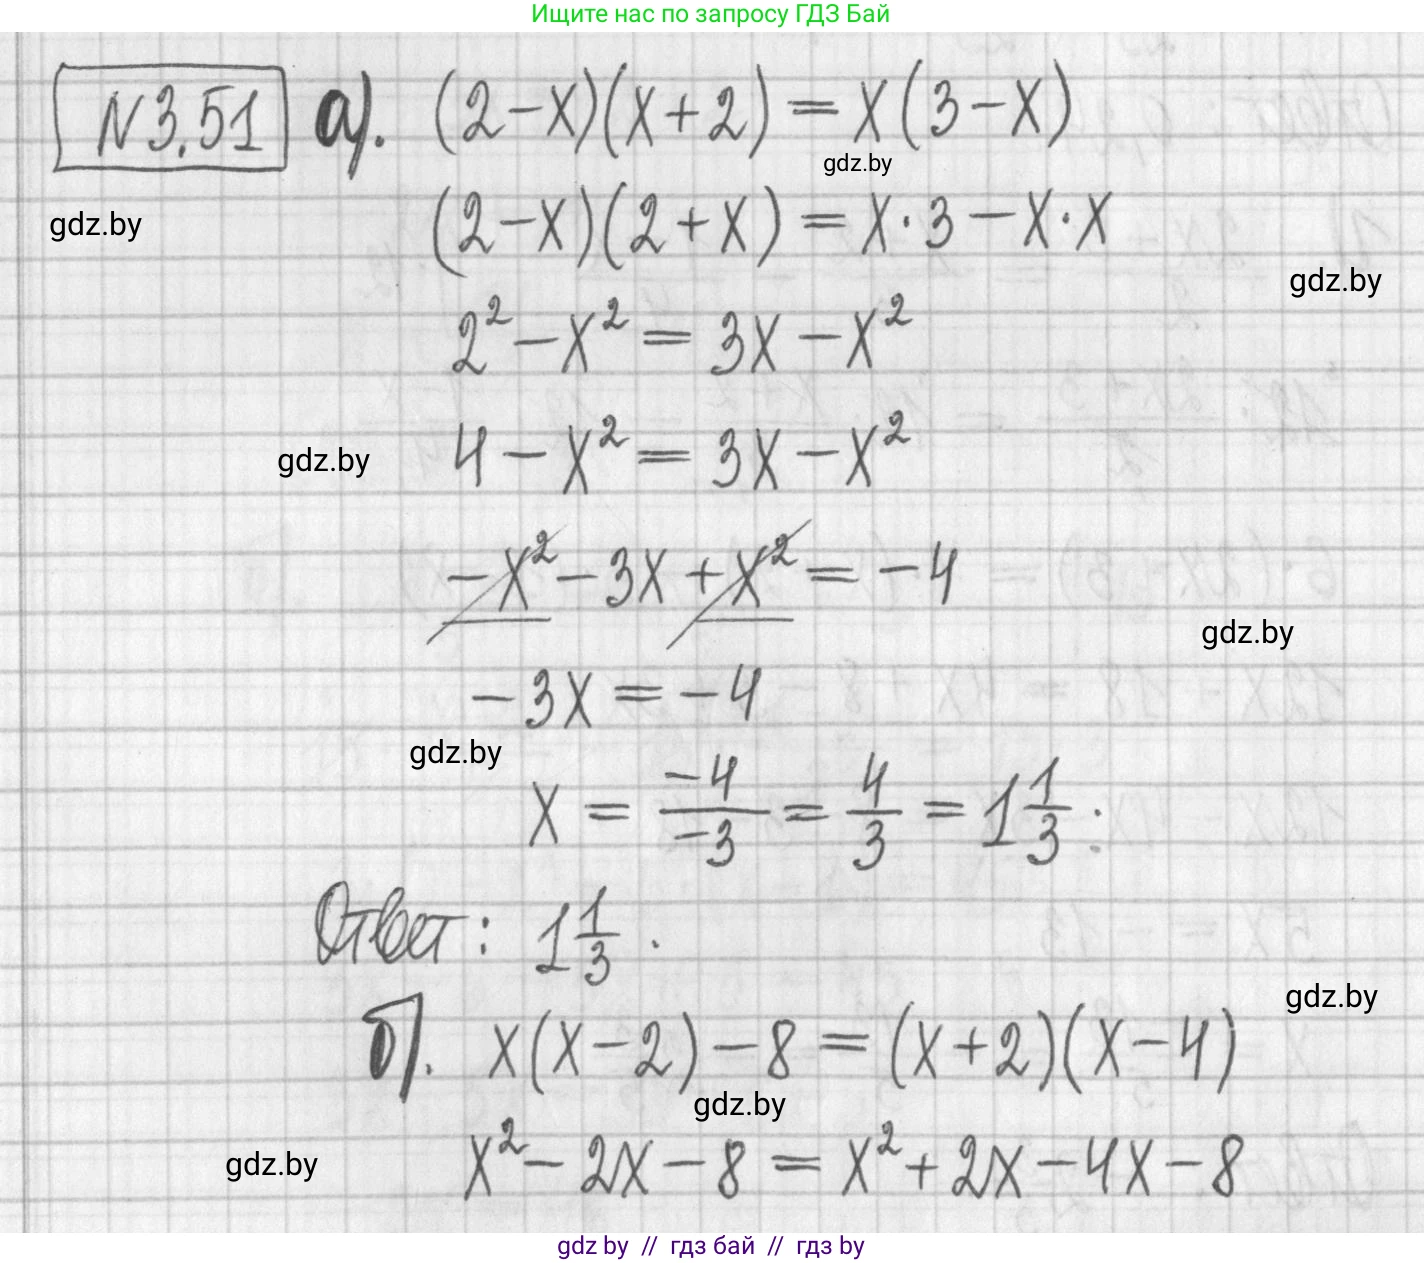 Ищите нас по запросу ГДЗ Бай
N3.51 а). (2-x)(x+2)=x(3-x)
gdz.by
gdz.by
(2-x)(2+x)=x·3-x·x
gdz.by
2²-x²=3x-x²
4-x²=3x-x²
gdz.by
-x²-3x+x²=-4
gdz.by
-3x=-4
gdz.by
x = -4/-3 = 4/3 = 1 1/3 :
Ответ: 1 1/3 .
gdz.by
б). x(x-2)-8=(x+2)(x-4)
gdz.by
x²-2x-8=x²+2x-4x-8
gdz.by
gdz by // гдз бай // гдз by